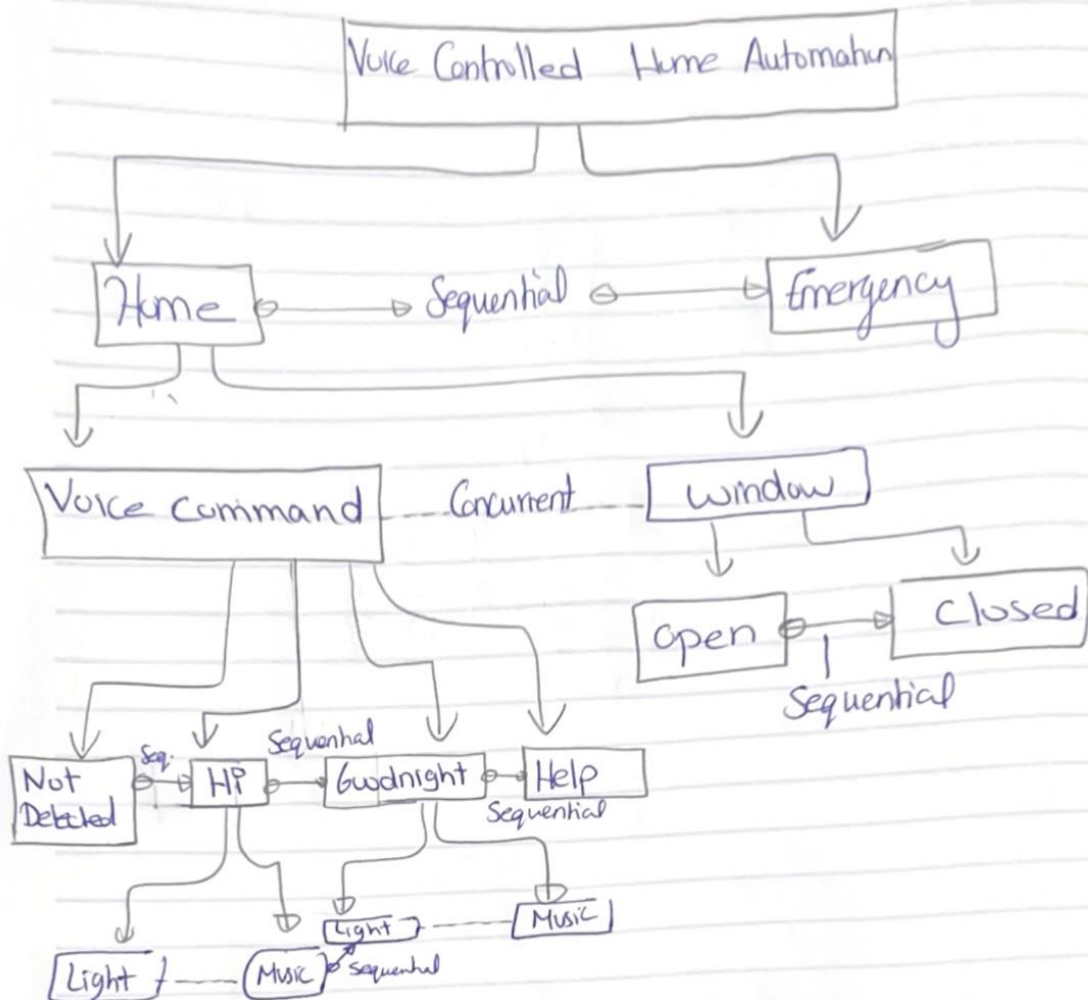 Voice Controlled Home Automation
Home
Sequential
Emergency
Voice Command
Concurrent
Window
Open
Closed
Sequential
Seq.
Sequential
Not
Detected
Hi
Goodnight
Help
Sequential
Light
Music
Light
Music
Sequential